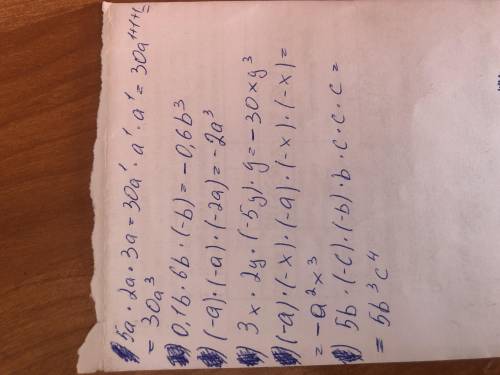 5a · 2a · 3a = 30a¹ · a¹ · a¹ = 30a¹⁺¹⁺¹ =
= 30a³
0,1b · 6b · (-b) = -0,6b³
(-a) · (-a) · (-2a) = -2a³
3x · 2y · (-5y) · y = -30xy³
(-a) · (-x) · (-a) · (-x) · (-x) =
= -a²x³
5b · (-c) · (-b) · b · c · c · c =
= 5b³c⁴